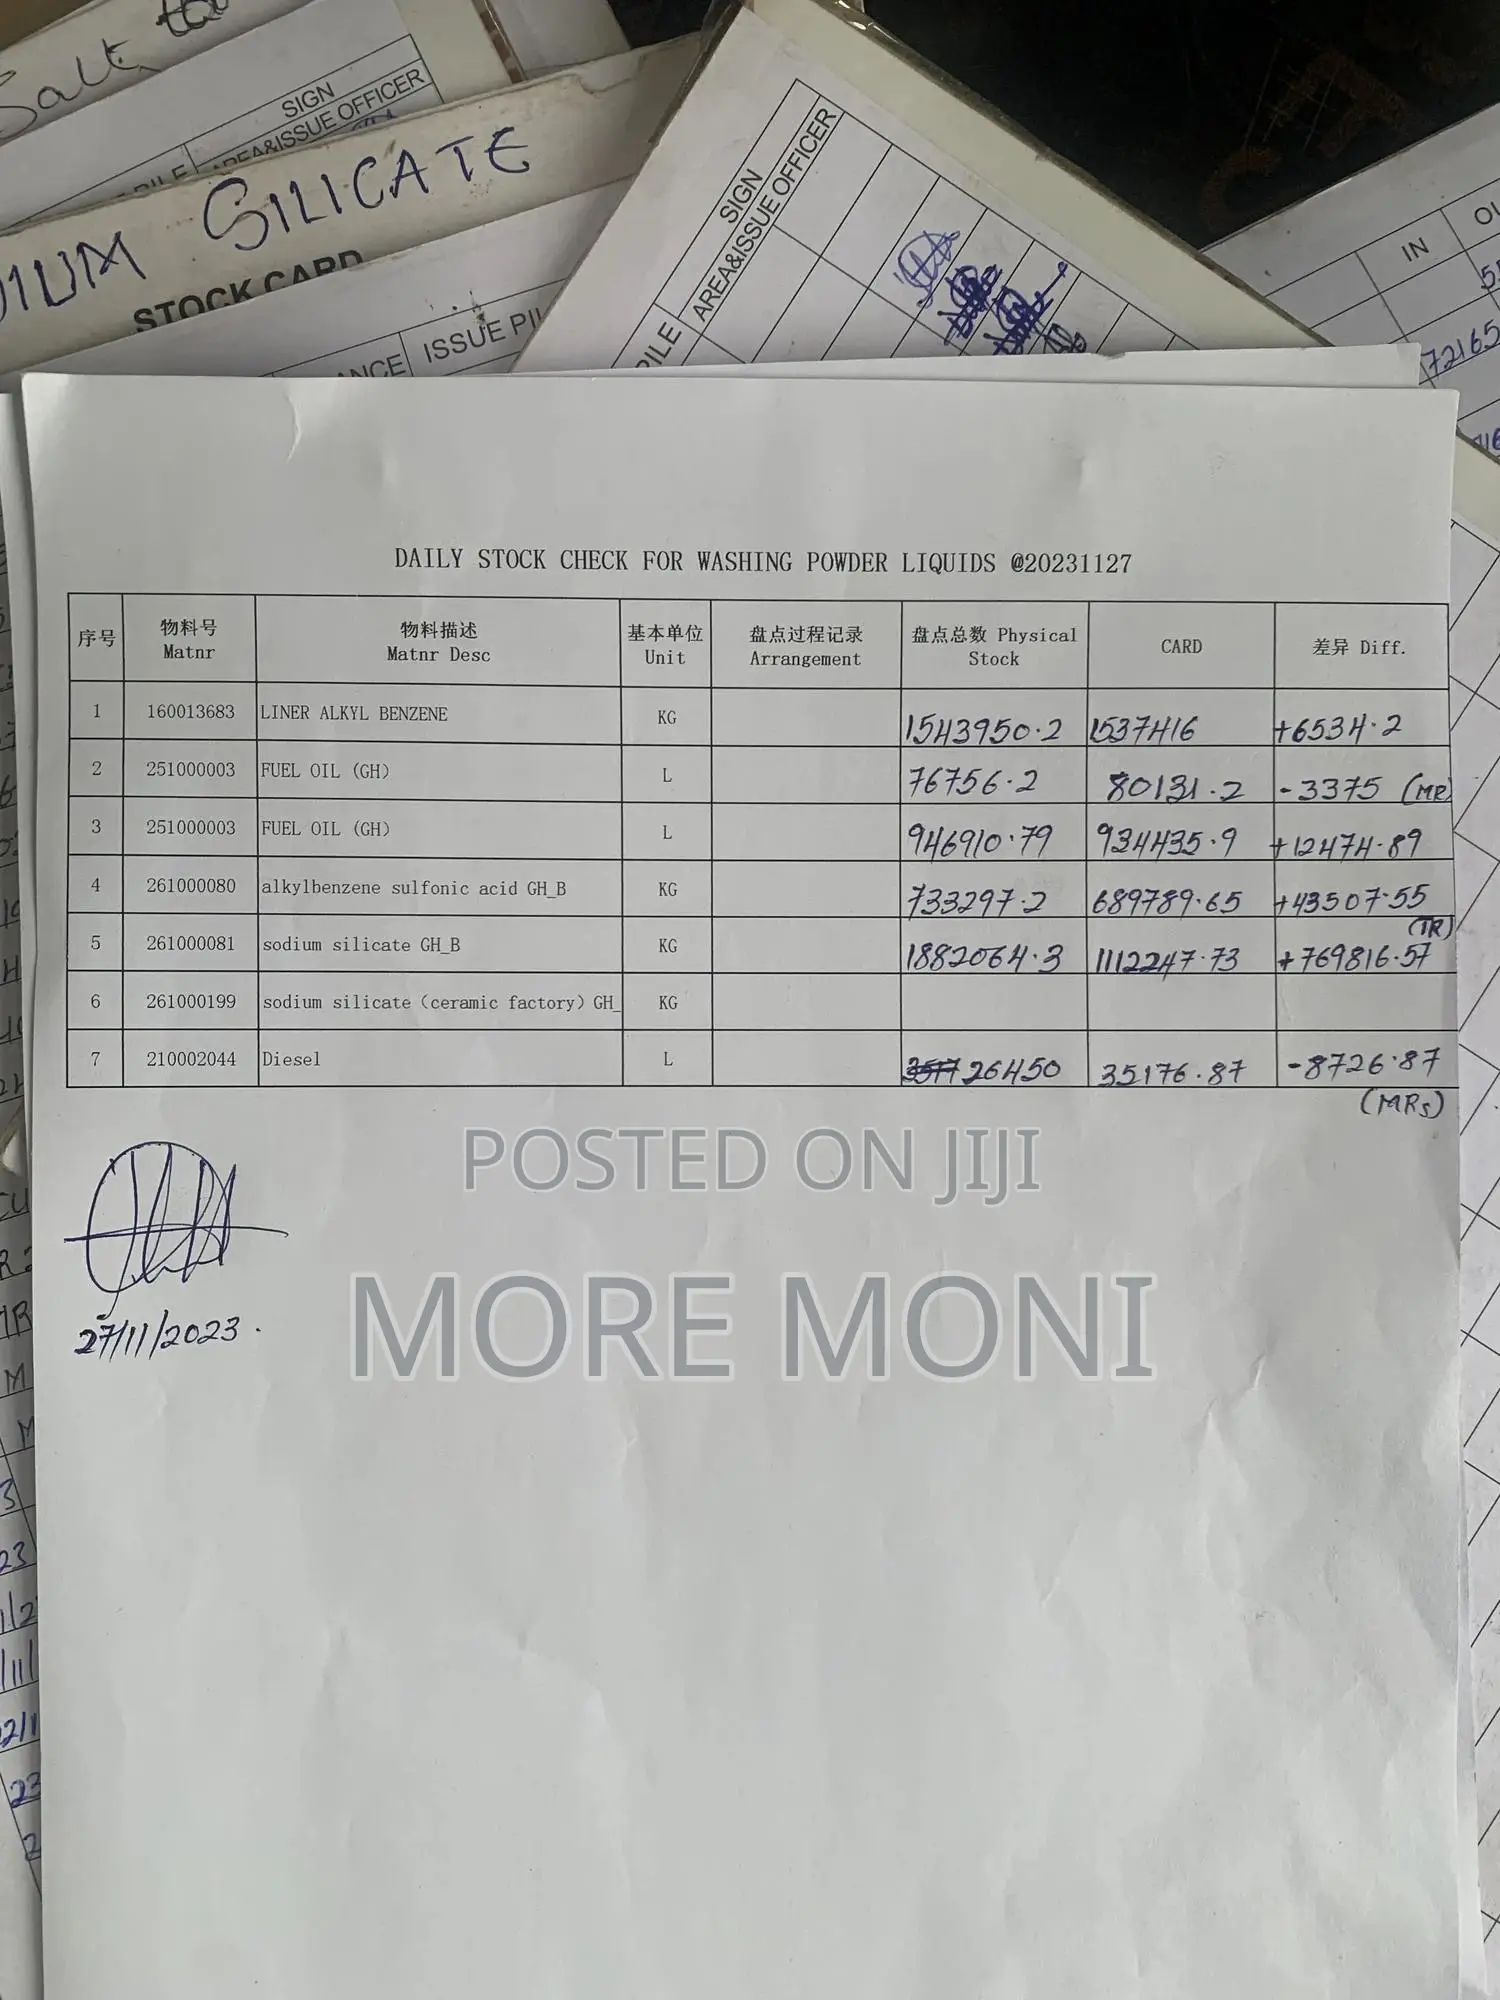 Salt
SIGN
AREA&ISSUE OFFICER
SILICATE
STOCK CARD
ISSUE PIL
SIGN
AREA&ISSUE OFFICER
PILE
IN
72165
DAILY STOCK CHECK FOR WASHING POWDER LIQUIDS @20231127
序号 物料号 Matnr 物料描述 Matnr Desc 基本单位 Unit 盘点过程记录 Arrangement 盘点总数 Physical Stock CARD 差异 Diff.
1 160013683 LINER ALKYL BENZENE KG 1543950.2 1537416 +6534.2
2 251000003 FUEL OIL (GH) L 76756.2 80131.2 -3375 (MR)
3 251000003 FUEL OIL (GH) L 946910.79 934435.9 +12474.89
4 261000080 alkylbenzene sulfonic acid GH_B KG 733297.2 689789.65 +43507.55
(TR)
5 261000081 sodium silicate GH_B KG 1882064.3 1112247.73 +769816.57
6 261000199 sodium silicate（ceramic factory）GH_ KG
7 210002044 Diesel L 26450 35176.87 -8726.87
(MRs)
27/11/2023.
POSTED ON JIJI
MORE MONI